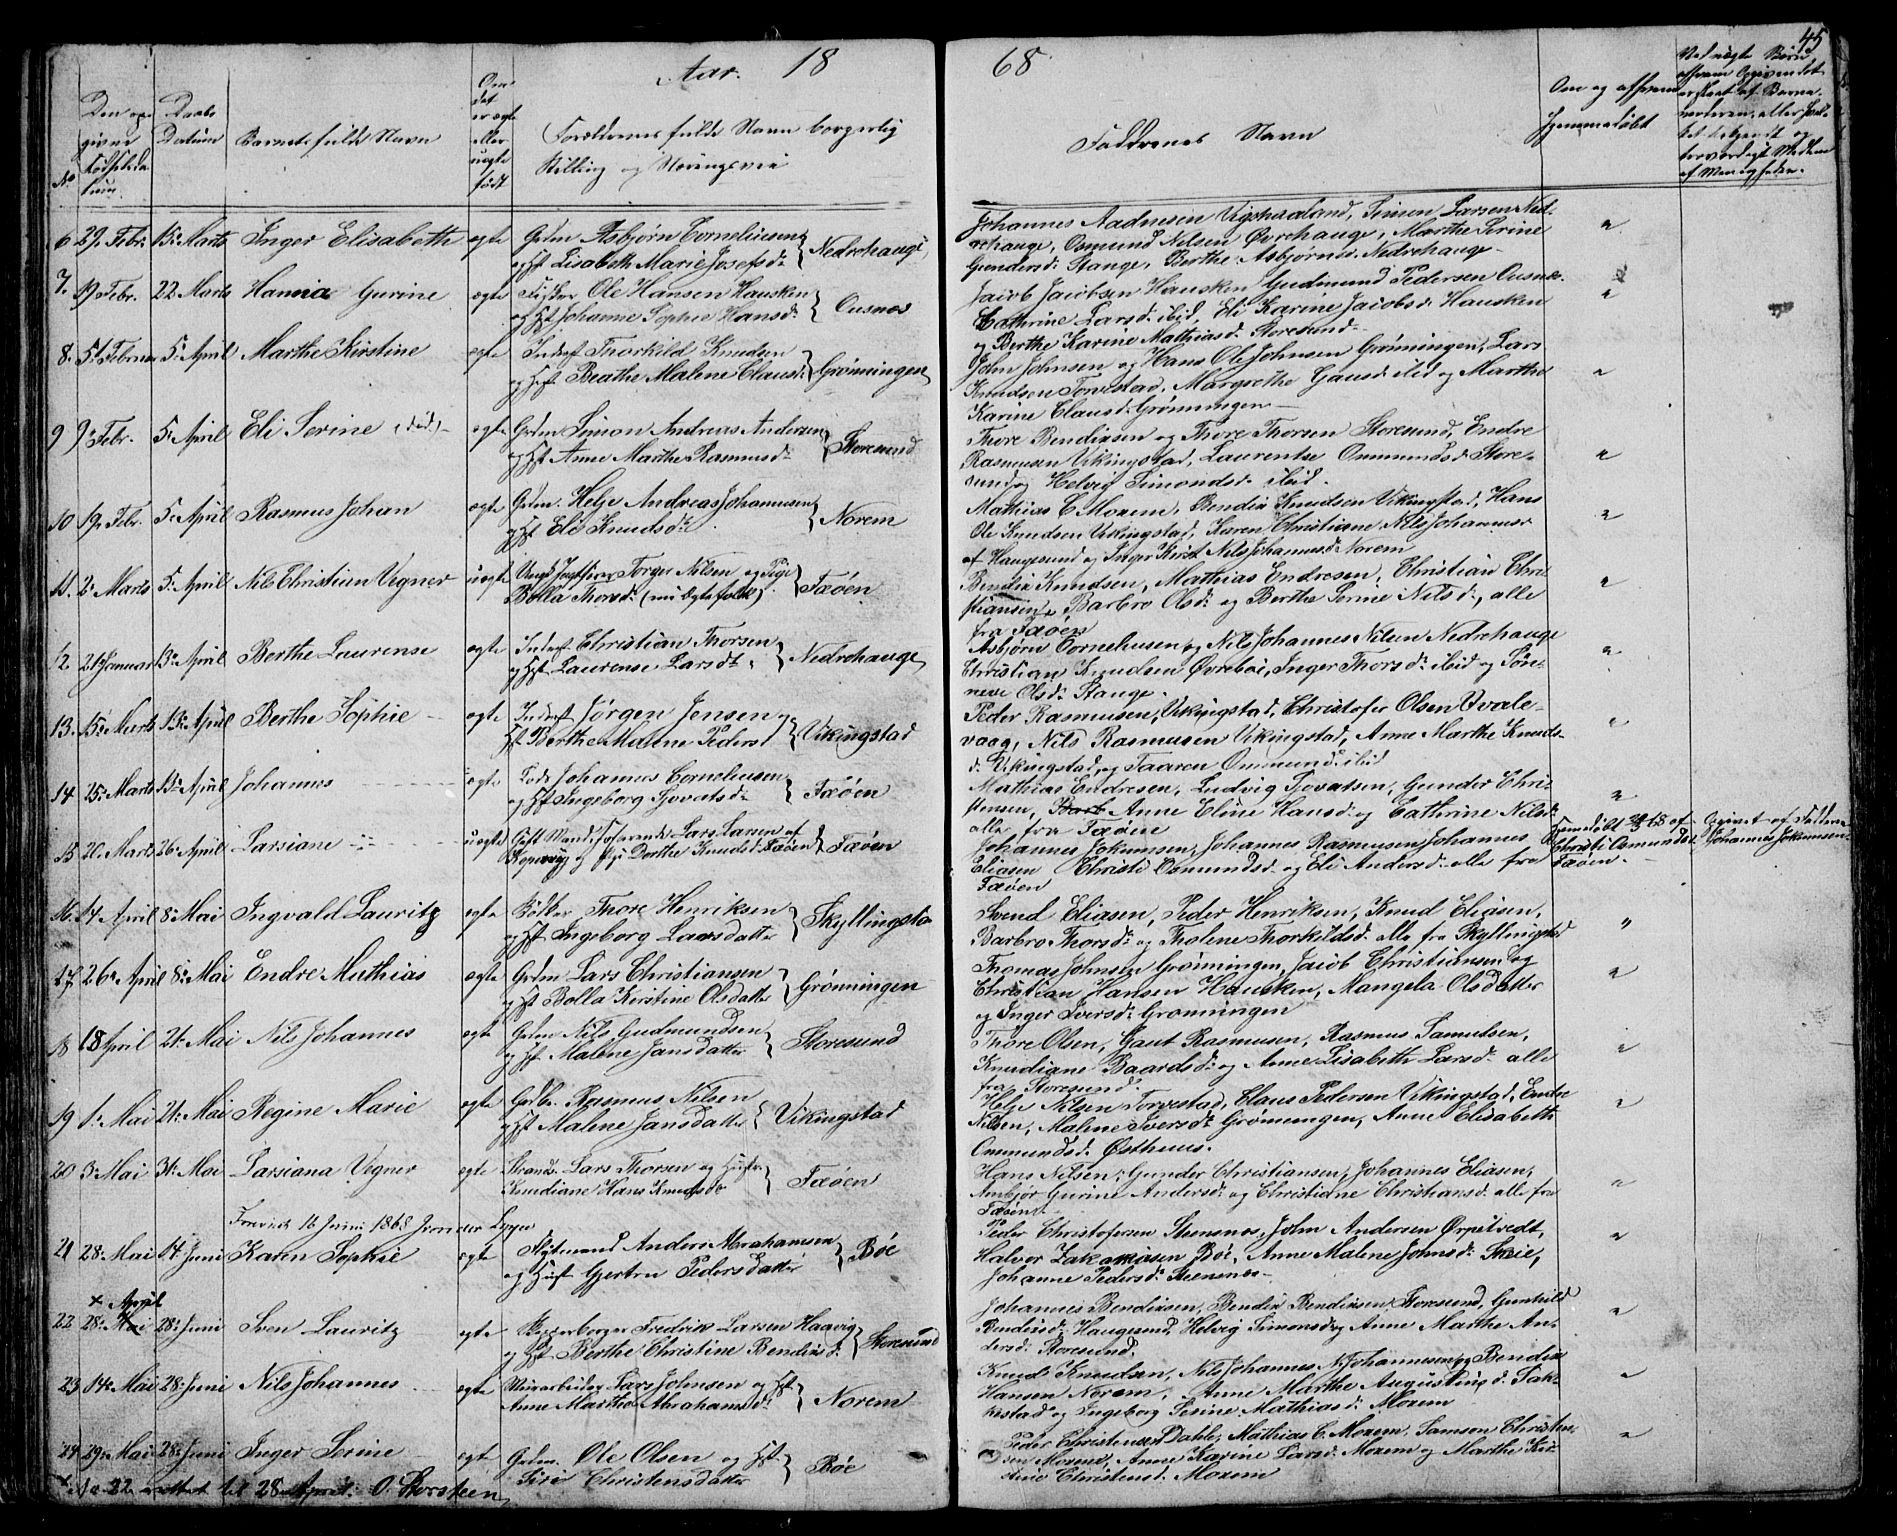 45
Aar. 18 68
No
Den op- givne Fødselsda- tum
Daabs Datum
Barnets fulde Navn
Om det er ægte eller uægte født
Forældrenes fulde Navn borgerlig
Stilling og Næringsvei
Faddrenes Navn
Om og af hvem hjemmedøbt
Ved uægte Børn
6 29. Febr. 15. Marts Inger Elisabeth ægte Grdm Asbjørn Corneliusen og Hst Lisabeth Marie Josefsd: Nedrehauge
Johannes Aadnesen Vigshaaland, Simon Larsen Ned-
rehauge, Osmund Nilsen Øvrehauge, Marthe Sirine
Gundersd: Stange, Berthe Asbjørnsd: Nedrehauge
7. 19 Febr. 22 Marts Hanna Gurine ægte Fisker Ole Hansen Hausken og Hst Johanne Sophie Hansd: Ousnes
Jacob Jacobsen Hausken Gudmund Pedersen Ousnes
Cathrine Larsd: ibid, Eli Karine Jacobsd: Hausken
og Berthe Karine Mathiasd: Storesund
8. 5. Februar 5. April Marthe Kirstine ægte Inderst Thorkild Knudsen og Hst Beathe Malene Clausd: Grønningen
John Johnsen og Hans Ole Johnsen Grønningen, Lars
Knudsen Torvestad, Margrethe Gausd: ibid og Marthe
Karine Clausd: Grønningen
9 9. Febr. 5. April Eli Serine (død) ægte Grdm Simon Andreas Andersen og Hst Anne Marthe Rasmusd: Storesund
Thore Bendixsen og Thore Thorsen Storesund, Endre
Rasmusen Vikingstad, Laurentse Ommundsd: Store-
sund og Helvig Simonsd: ibid.
10 19. Febr. 5. April Rasmus Johan ægte Grdm. Helje Andreas Johannesen og Hst Eli Knudsd: Norem
Mathias C. Moxem, Bendix Knudsen Vikingstad, Hans
Ole Knudsen Vikingstad, Karen Christiane Nils Johannesd
af Haugesund og Inger Kirst. Nils Johannesd: Norem
11. 2. Marts 5. April Nils Christian Vegner uægte Ungk. Torger Nilsen og Pige Bolla Thorsd: (nu Ægtefolk) Fæøen
Bendix Knudsen, Mathias Endresen, Christian Chri-
stiansen, Barbro Olsd: og Berthe Serine Nilsd:, alle
fra Fæøen
12 21. Januar 13. April Berthe Laurense ægte Inderst Christian Thorsen og Hst Laurense Larsd: Nedrehauge
Asbjørn Corneliusen og Nils Johannes Nilsen Nedrehauge
Christian Knudsen Øvrebøe, Inger Thorsd: ibid og Søn-
neve Olsd: Stange.
13. 15. Marts 13. April Berthe Sophie ægte Inderst Jørgen Jensen og Hst Berthe Malene Pedersd Vikingstad
Peder Rasmusen, Vikingstad, Christofer Olsen Hvale-
vaag, Nils Rasmusen Vikingstad, Anne Marthe Knuds-
d: Vikingstad og Taaren Ommundsd: ibid
14 25. Marts 13. April Johannes ægte Johannes Corneliusen og Hst Ingeborg Sjovatsd: Fæøen
Mathias Endresen, Ludvig Sjovatsen, Gunder Chri-
stensen, Anne Eline Hansd: og Cathrine Nilsd:
alle fra Fæøen
15 20. Marts 26. April Larsiane uægte Gift Mand Søfarende Lars Larsen af Kopervig og Pige Dorthe Knudsd: Fæøen Fæøen
Johannes Jokumsen, Johannes Rasmusen Johannes
Eliasen Christi Osmundsd: og Eli Andersd: alle fra
Fæøen
Hjemmedøbt af Christi Osmundsd: Fæøen.
Opgivet af Fadderen Johannes Jokumsen
16. 14 April 8. Mai Ingvald Lauritz ægte Bødker Thore Henriksen og Hst Ingeborg Larsdatter Skyllingstad
Svend Eliasen, Peder Henriksen, Knud Eliasen,
Barbro Thorsd: og Tholene Thorkildsd: alle fra Skyllingstad
17 26. April 8. Mai Endre Mathias ægte Grdm Lars Christiansen og Hst Bolla Kirstine Olsdatter Grønningen
Thomas Johnsen Grønningen, Jacob Christiansen og
Christian Hansen Hausken, Mangela Olsdatter
og Inger Iversd: Grønningen
18 18 April 21. Mai Nils Johannes ægte Grdm Nils Gudmundsen og Hst Malene Jansdatter Storesund
Thore Olsen, Gaut Rasmusen, Rasmus Samuelsen,
Knudiane Baardsd: og Anne Lisabeth Larsd: alle
fra Storesund
19 1. Mai 21. Mai Regine Marie ægte Rasmus Nilsen og Hst Malene Jansdatter Vikingstad
Helje Nilsen Torvestad, Claus Pedersen Vikingstad, Endre
Nilsen, Malene Iversd: Grønningen, Anne Elisabeth
Ommundsd: Østhuus.
20 3. Mai 31. Mai Larsiana Vegner ægte Strands. Lars Thorsen og Hustru Knudiane Hans Knudsd: Fæøen
Hans Nilsen, Gunder Christiansen, Johannes Eliasen,
Anbjør Gurine Andersd: og Christidne Christiansd: alle fra
Fæøen
16 Juni 1868
21 28. Mai 14. Juni Karen Sophie ægte Styrmand Anders Abrahamsen og Hust Gjertru Pedersdatter Bøe
Peder Christofersen Stensnes, John Andersen Ørpetvedt,
Halvor Zakariasen Bøe, Anne Malene Johnsd: Skeie,
Johanne Pedersd: Steensnes
x April
22 28. Mai 28. Juni Sven Lauritz ægte Skipperborger Fredrik Larsen Haavig og Hst Berthe Christine Bendixsd: Storesund
Johannes Bendixsen, Bendix Bendixsen Storesund, Gunhild
Bendixsd: Haugesund, Helvig Simonsd: og Anne Marthe An-
dersd: Storesund.
23 14. Mai 28. Juni Nils Johannes ægte Murarbeider Lars Johnsen og Hst Anne Marthe Abrahamsd: Norem
Knud Knudsen, Nils Johannes N. Johannesen og Bendix
Hansen Norem, Anne Marthe Augustinusd: Sak-
kestad og Ingeborg Serine Mathiasd: Moxem
24 29. Mai 28. Juni Inger Serine ægte Grdm. Ole Olsen og Hst Siri Christensdatter Bøe
Peder Christensen Dahle, Mathias C. Moxem, Samson Christen-
sen Moxem, Anne Karine Larsd: Moxem og Marthe Kir-
stine Christensd: Moxem
x No 22 rettet til 28 April. O. Storsteen